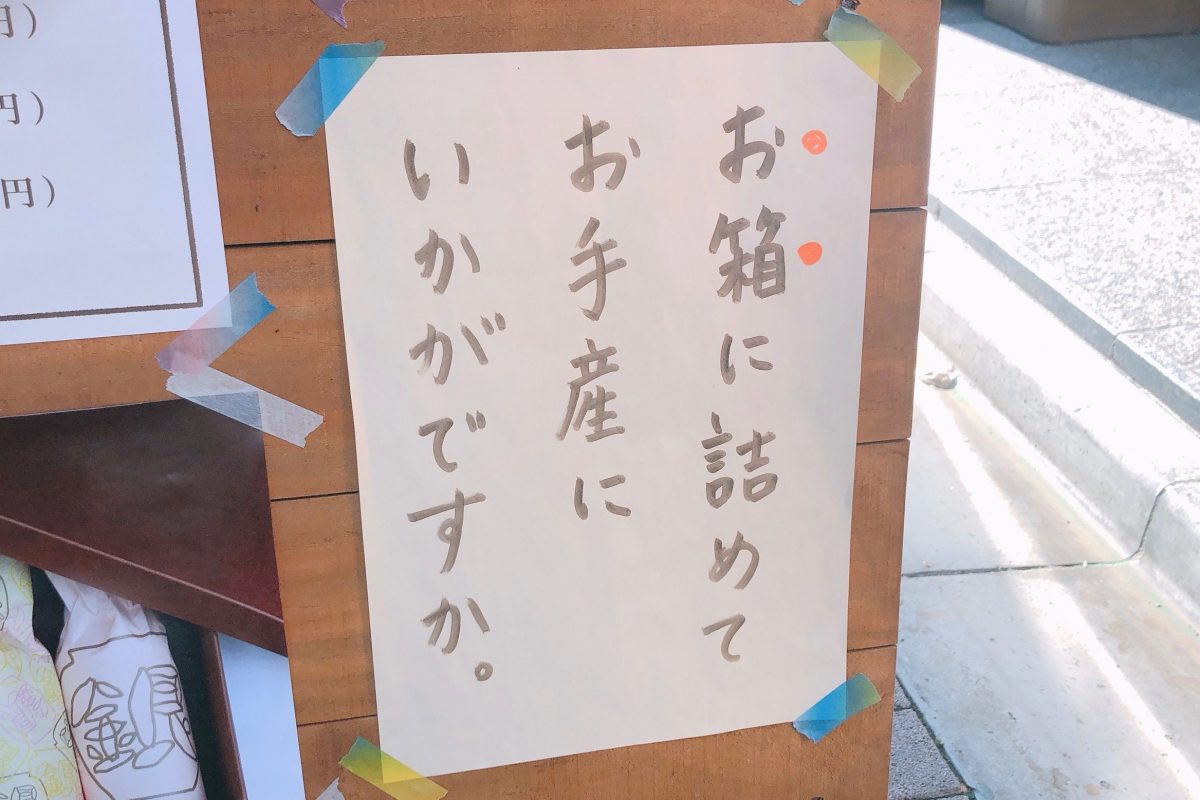 お箱に詰めて
お手産に
いかがですか。
円）
円）
円）